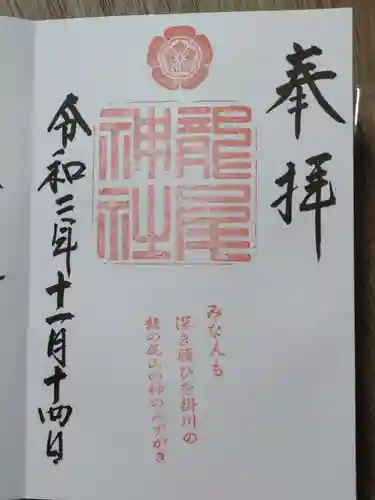 奉拝
龍尾
神社
みな人も
深き願ひを掛川の
龍の尾山の神のみずがき
令和二年十一月十四日